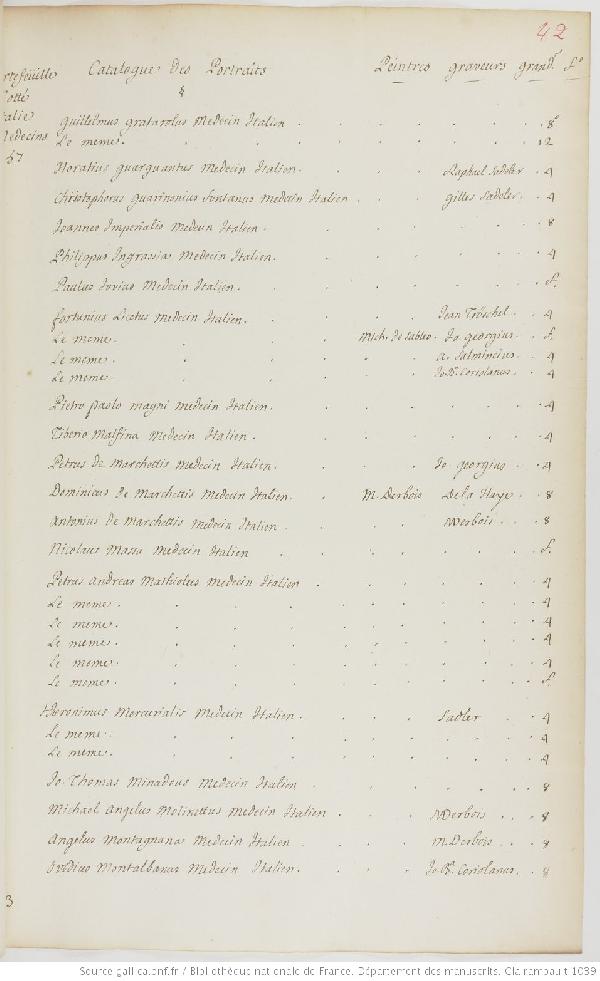 42
Catalogue des Portraits Peintres graveurs grandr. fo.
rtefeüille
Cotté
talie
Medecins
57
§
Guillelmus gratarolus Medecin Italien . . . . . 8o
Le meme . . . . . 12
Horatius guarguantus Medecin Italien . Raphael Sadeler . 4
Christophorus guarinonius fontanus Medecin Italien . gilles Sadeler . 4
Joannes Imperialis Medecin Italien . 8
Philippus Ingrassia Medecin Italien . 4
Paulus Jovius Medecin Italien . f.
fortunius Licetus Medecin Italien . Jean Tröschel . 4
Le meme . Mich. de sableo . Jo. georgius . f.
Le meme . a. Salmincius . 4
Le meme . Jo. B. Coriolanus . 4
Pietro paolo magni medecin Italien . 4
Tiberio Malfina Medecin Italien . 4
Petrus de Marchettis medecin Italien . Jo. georgius . 4
Dominicus de Marchettis Medecin Italien . M. Derbois De la Haye . 8
Antonius de Marchettis Medecin Italien . MDerbois . 8
Nicolaus Massa Medecin Italien . f.
Petrus Andreas Mathiolus Medecin Italien . 4
Le meme . 4
Le meme . 4
Le meme . 4
Le meme . 4
Le meme . f.
Hieronimus Mercurialis Medecin Italien . Sadler . 4
Le meme . 4
Le meme . 4
Jo. Thomas Minadous medecin Italien . 8
Michael Angelus Molinettus medecin Italien . MDerbois . 8
Angelus Montagnana Medecin Italien . m. Derbois . 8
Ovidius Montalbanus Medecin Italien . Jo. B. Coriolanus . 8
3
Source gallica.bnf.fr / Bibliothèque nationale de France. Département des manuscrits. Clairambault 1039